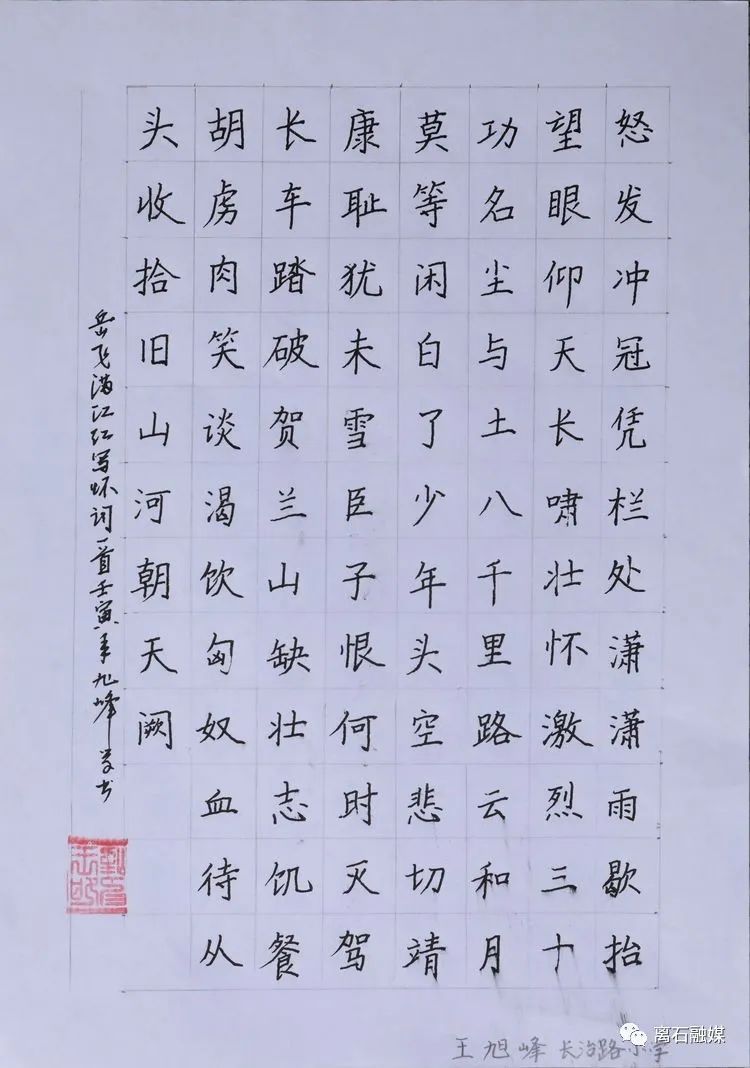 怒发冲冠凭栏处潇潇雨歇抬
望眼仰天长啸壮怀激烈三十
功名尘与土八千里路云和月
莫等闲白了少年头空悲切靖
康耻犹未雪臣子恨何时灭驾
长车踏破贺兰山缺壮志饥餐
胡虏肉笑谈渴饮匈奴血待从
头收拾旧山河朝天阙
岳飞满江红写怀词一首壬寅年旭峰学书
王旭峰 长治路小学
离石融媒